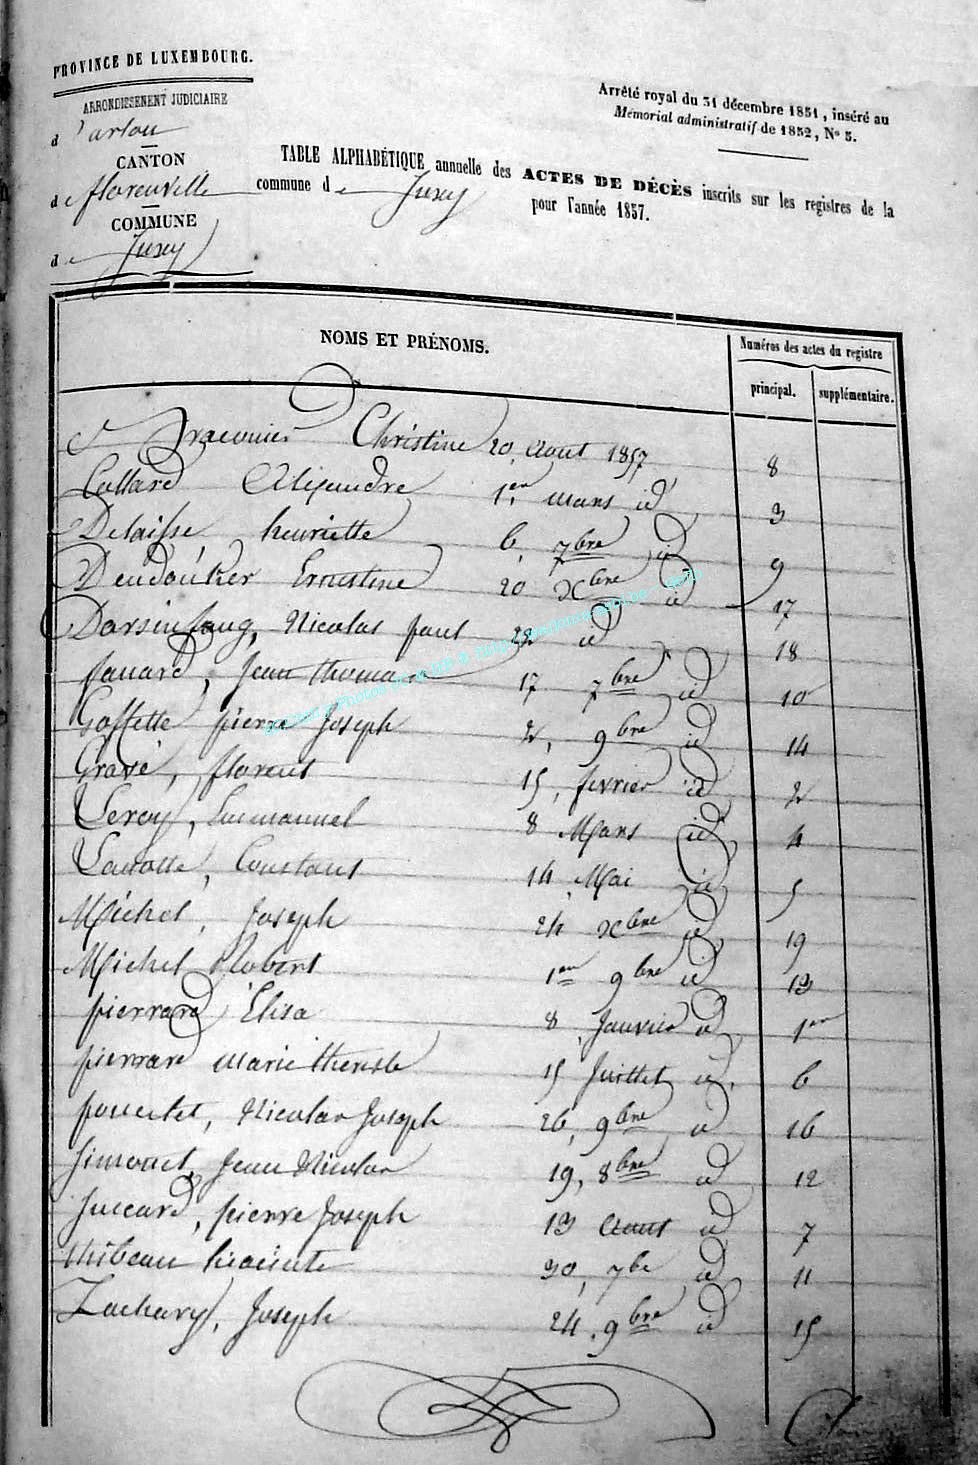 PROVINCE DE LUXEMBOURG.
ARRONDISSEMENT JUDICIAIRE
d'arlon
CANTON
de florenville
COMMUNE
de Jusey
Arrêté royal du 31 décembre 1851, inséré au
Mémorial administratif de 1852, N° 5.
TABLE ALPHABÉTIQUE annuelle des ACTES DE DÉCÈS inscrits sur les registres de la
commune de Jusey pour l'année 1857.
NOMS ET PRÉNOMS. Numéros des actes du registre
principal. supplémentaire.
Christine 20, Aout 1857 8
Collard Alexandre 1er mars id 3
Delaisse henriette 6, 7bre id 9
Ernestine 20 xbre id 17
Nicolas paul 22 id 18
fanard, Jean thomas 17 7bre id 10
Goffette pierre Joseph 2, 9bre id 14
Gravé, florent 15, fevrier id 2
Leroy, Emmanuel 8 Mars id 4
Constant 14, Mai id 5
Michel, Joseph 24 xbre id 19
Michel Robert 1er 9bre id 13
pierrard Elisa 8 Janvier id 1er
pierrard marie therese 15 Juillet id. 6
poncelet, Nicolas Joseph 26, 9bre id 16
Simonet, Jean Nicolas 19, 8bre id 12
pierre Joseph 13 Aout id 7
thibeau hiacinte 30, 7bre id 11
Zachary, Joseph 24, 9bre id 15